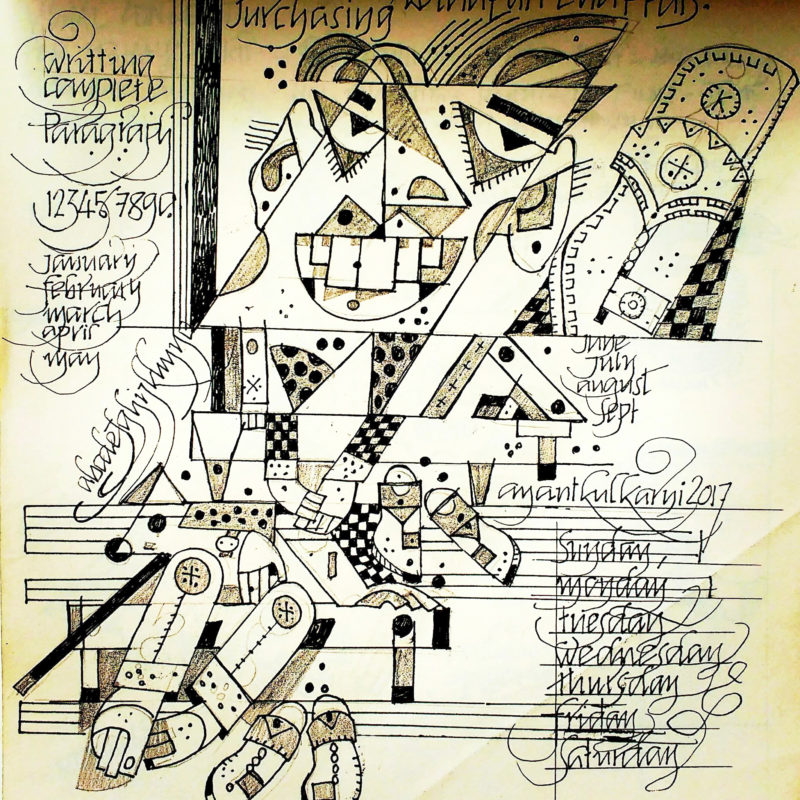 Purchasing
writting
complete
Paragraph
1234567890
january
february
march
april
may
june
july
august
sept
Sunday
monday
tuesday
wednesday
thursday
friday
Saturday